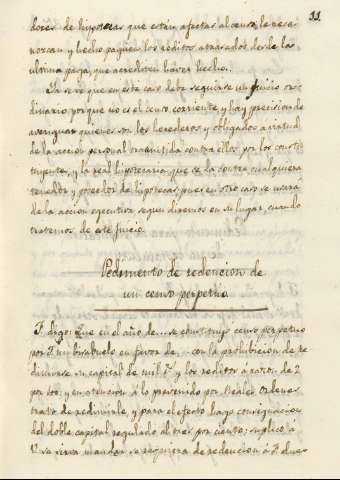 33.
dores de hipotecas que están afectas al censo, le reco-
nozcan y hecho paguen los reditos atrasados desde la
ultima paga, que acrediten haver hecho.
Ya se ve que en este caso debe seguirse un juicio or-
dinario porque no es el censo corriente, y hay precision de
averiguar quienes son los herederos y obligados a virtud
de la accion personal transmitida contra ellos por los consti-
tuyentes, y la real hipotecaria que se da contra cualquiera
tenedor y poseedor de hipotecas, pues en otro caso se usará
de la accion egecutiva segun diremos en su lugar, cuando
tratemos de este juicio.
Pedimento de redencion de
un censo perpetuo
F. digo: Que en el año de... se constituyó censo perpetuo
por F. mi bisabuelo en favor de... con la prohibicion de re
dimirse su capital de mil r.s y los reditos á razon de 2
por 100; y en atencion á lo prevenido por Reales ordenes
trato de redimirle, y para el efecto hago consignacion
del doble capital regulado al tres por ciento; suplico á
V. se sirva mandar se requiera de redencion á F. dueº